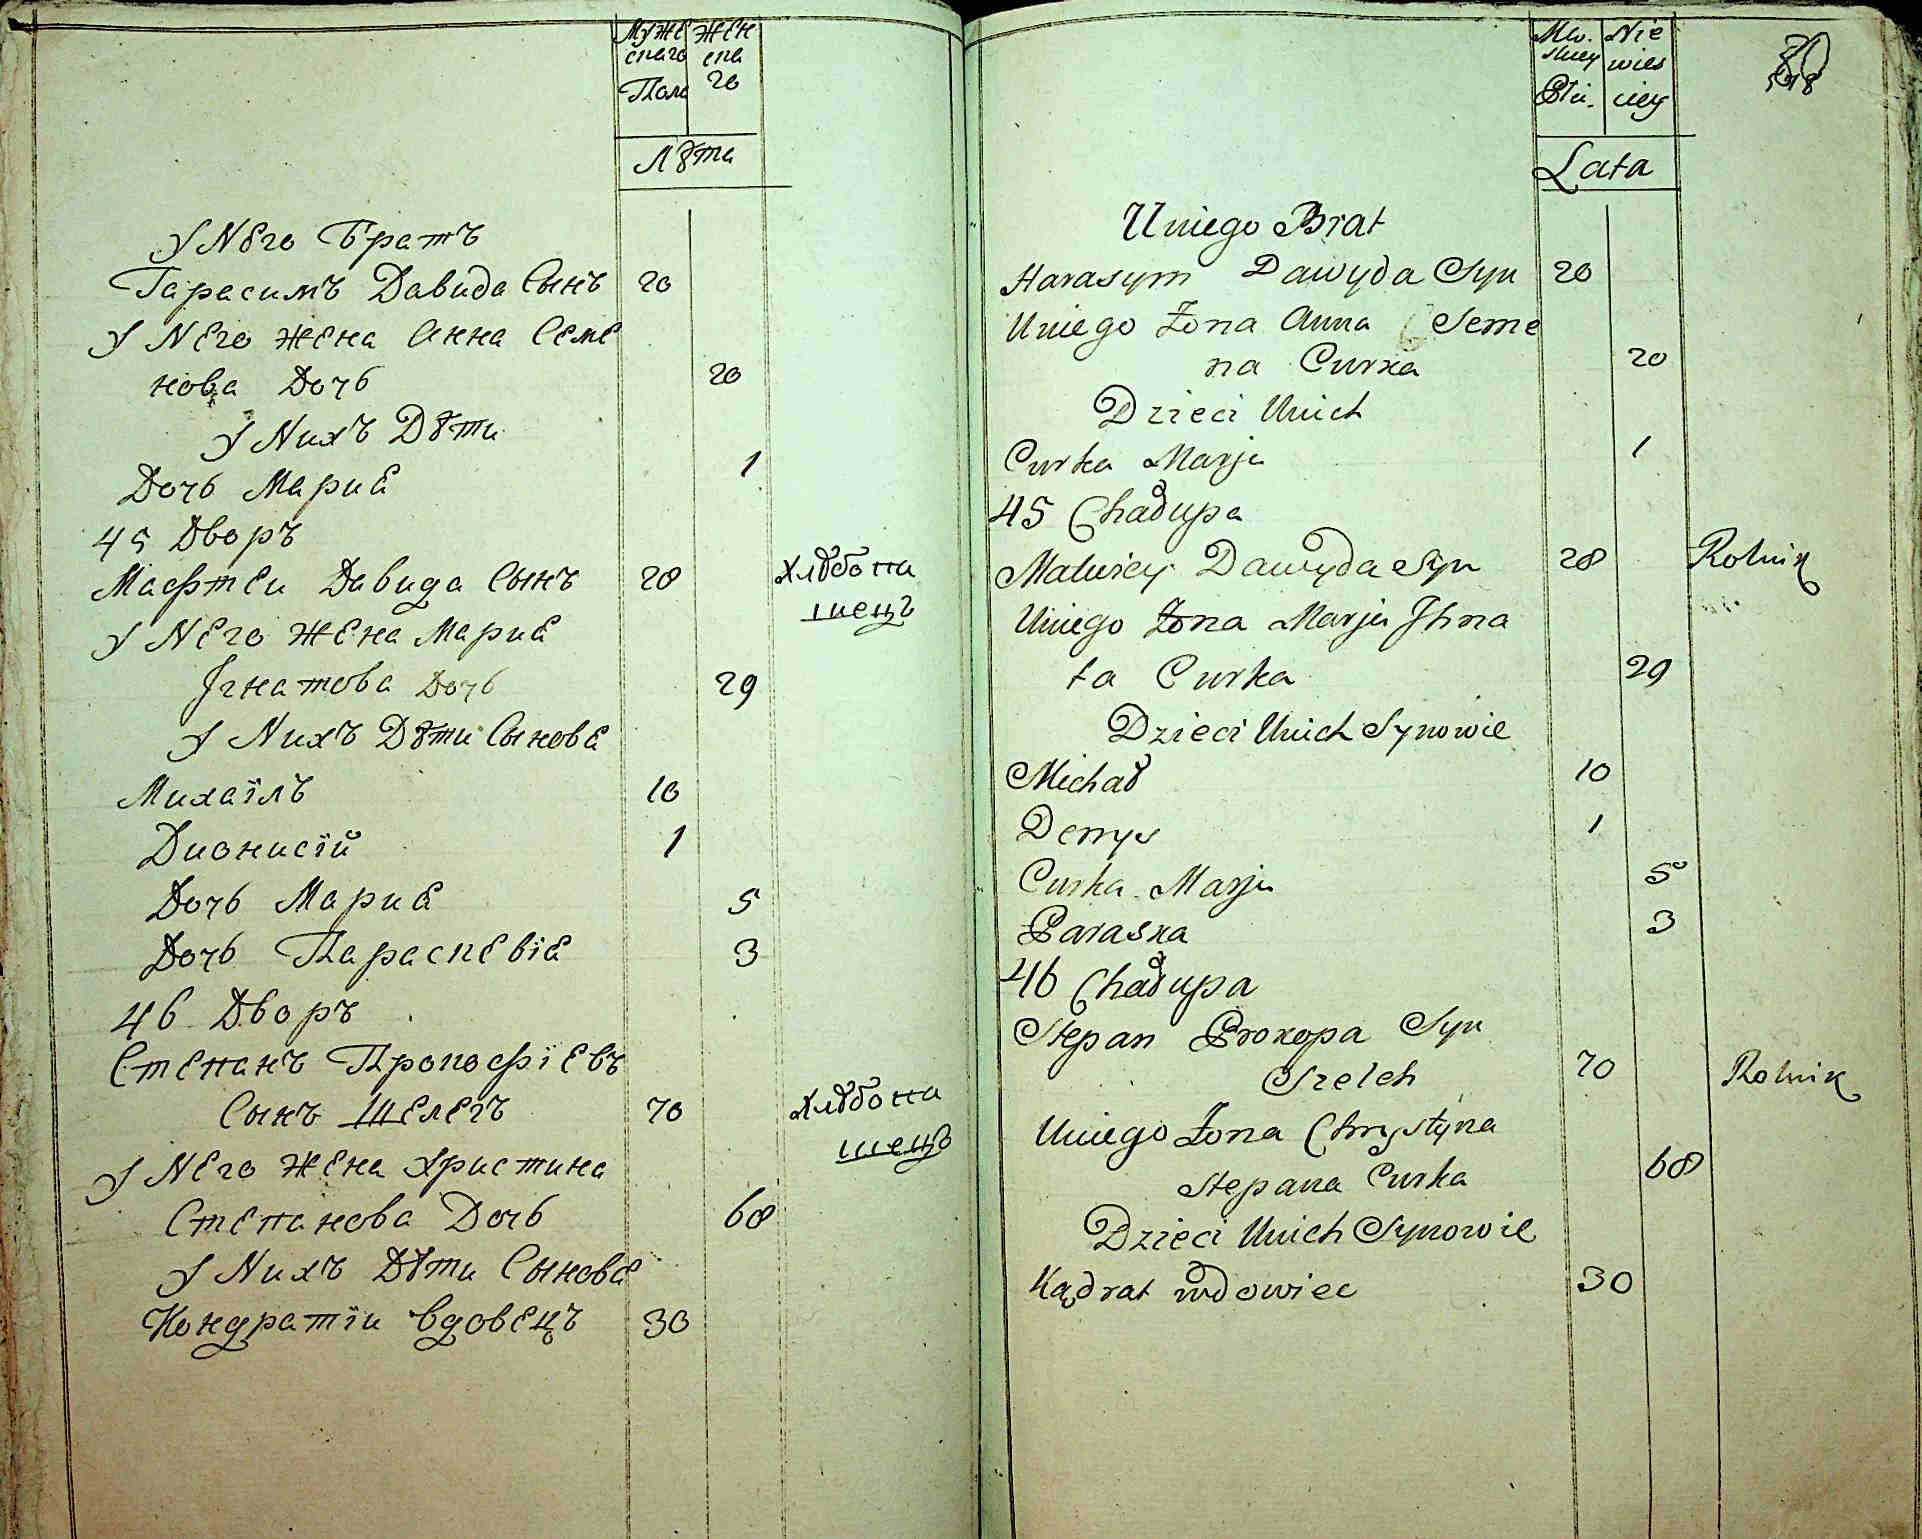 Муже Жен
скаго ска
Пола го
Лѣта
У Него Братъ
Гарасимъ Давида Сынъ 20
У Него жена Анна Семе
нова Дочь 20
У Нихъ Дѣти
Дочь Мариа 1
45 Дворъ
Мафтеи Давида Сынъ 28 хлѣбопа
шецъ
У Него жена Мариа
Iгнатова Дочь 29
У Нихъ Дѣти Сынове
Михаїлъ 10
Дионисїй 1
Дочь Мариа 5
Дочь Параскевїа 3
46 Дворъ
Степанъ Прокофїевъ
Сынъ Шелегъ 70 хлѣбопа
шецъ
У Него жена христина
Степанова Дочь 68
У Нихъ Дѣти Сынове
Кондратїи вдовецъ 30
Mez. Nie
skiey wies
Płci. ciey
Lata
Uniego Brat
Harasym Dawyda Syn 20
Uniego Żona Anna Seme
na Curka 20
Dzieci Unich
Curka Marja 1
45 Chałupa
Matwiey Dawyda Syn 28 Rolnik
Uniego Żona Marja Ihna
ta Curka 29
Dzieci Unich Synowie
Michał 10
Denys 1
Curka Marja 5
Paraska 3
46 Chałupa
Stepan Prokopa Syn
Szeleh 70 Rolnik
Uniego Żona Chrystyna
Stepana Curka 68
Dzieci Unich Synowie
Kądrat wdowiec 30